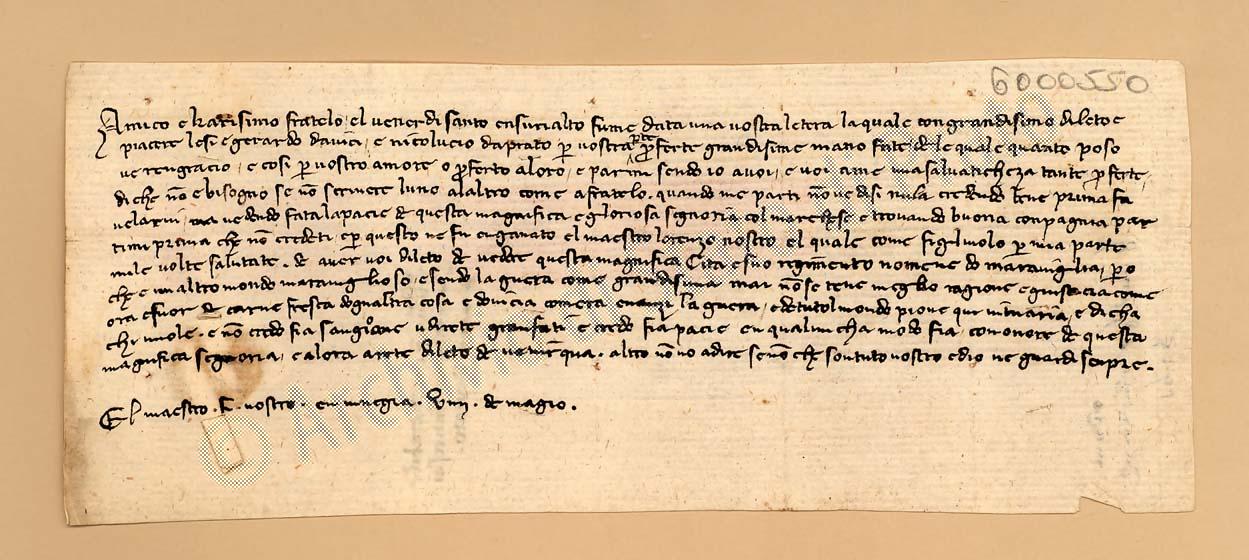 6000550
Amico e karisimo fratelo, el venerdi santo en surialto fume data una vostra letera la quale con grandisimo dileto e
piacere lesi e gerardo davici, e nicolucio da prato p vostra pte pferte grandisime mano fate de le quale quanto poso
ve rengracio, e cosi p vostro amore o pferto a loro, e parimi sendo io a voi, e voi a me una salvaticheza tante pferte,
di che no e bisogno se no scrivere luno alaltro come a fratelo. quando me parti no vedisi nula credendo
velarvi, ma vedendo fata la pacie de questa magnifica e gloriosa segnoria col marchese e trovando buona conpagnia par
timi prima che non credeti e per questo ne fu enganato el maestro lorenzo nostro el quale come figliuolo p mia parte
mile volte salutate. de aver voi dileto de vedere questa magnifica Cita e suo regimento no me ne do maraviglia, po
che e un altro mondo maraviglioso, e sendo la guera come grandisima mai no se tene meglio ragione e giusticia come
ora e fuor de carne fresca dognaltra cosa e divicia comera enanzi la guera, e de tutol mondo piove qui, e di cha
chi vuole. e no credo fia sangue credo fia pacie en qualuncha modo fia, con onore de questa
magnifica segnoria, e alora arete dileto de venir qua. altro no vo a dire se non che son tuto vostro e dio ve guardi senpre.
El maestro. vostro. en vinegia. VIIII. de magio.
© Archivio